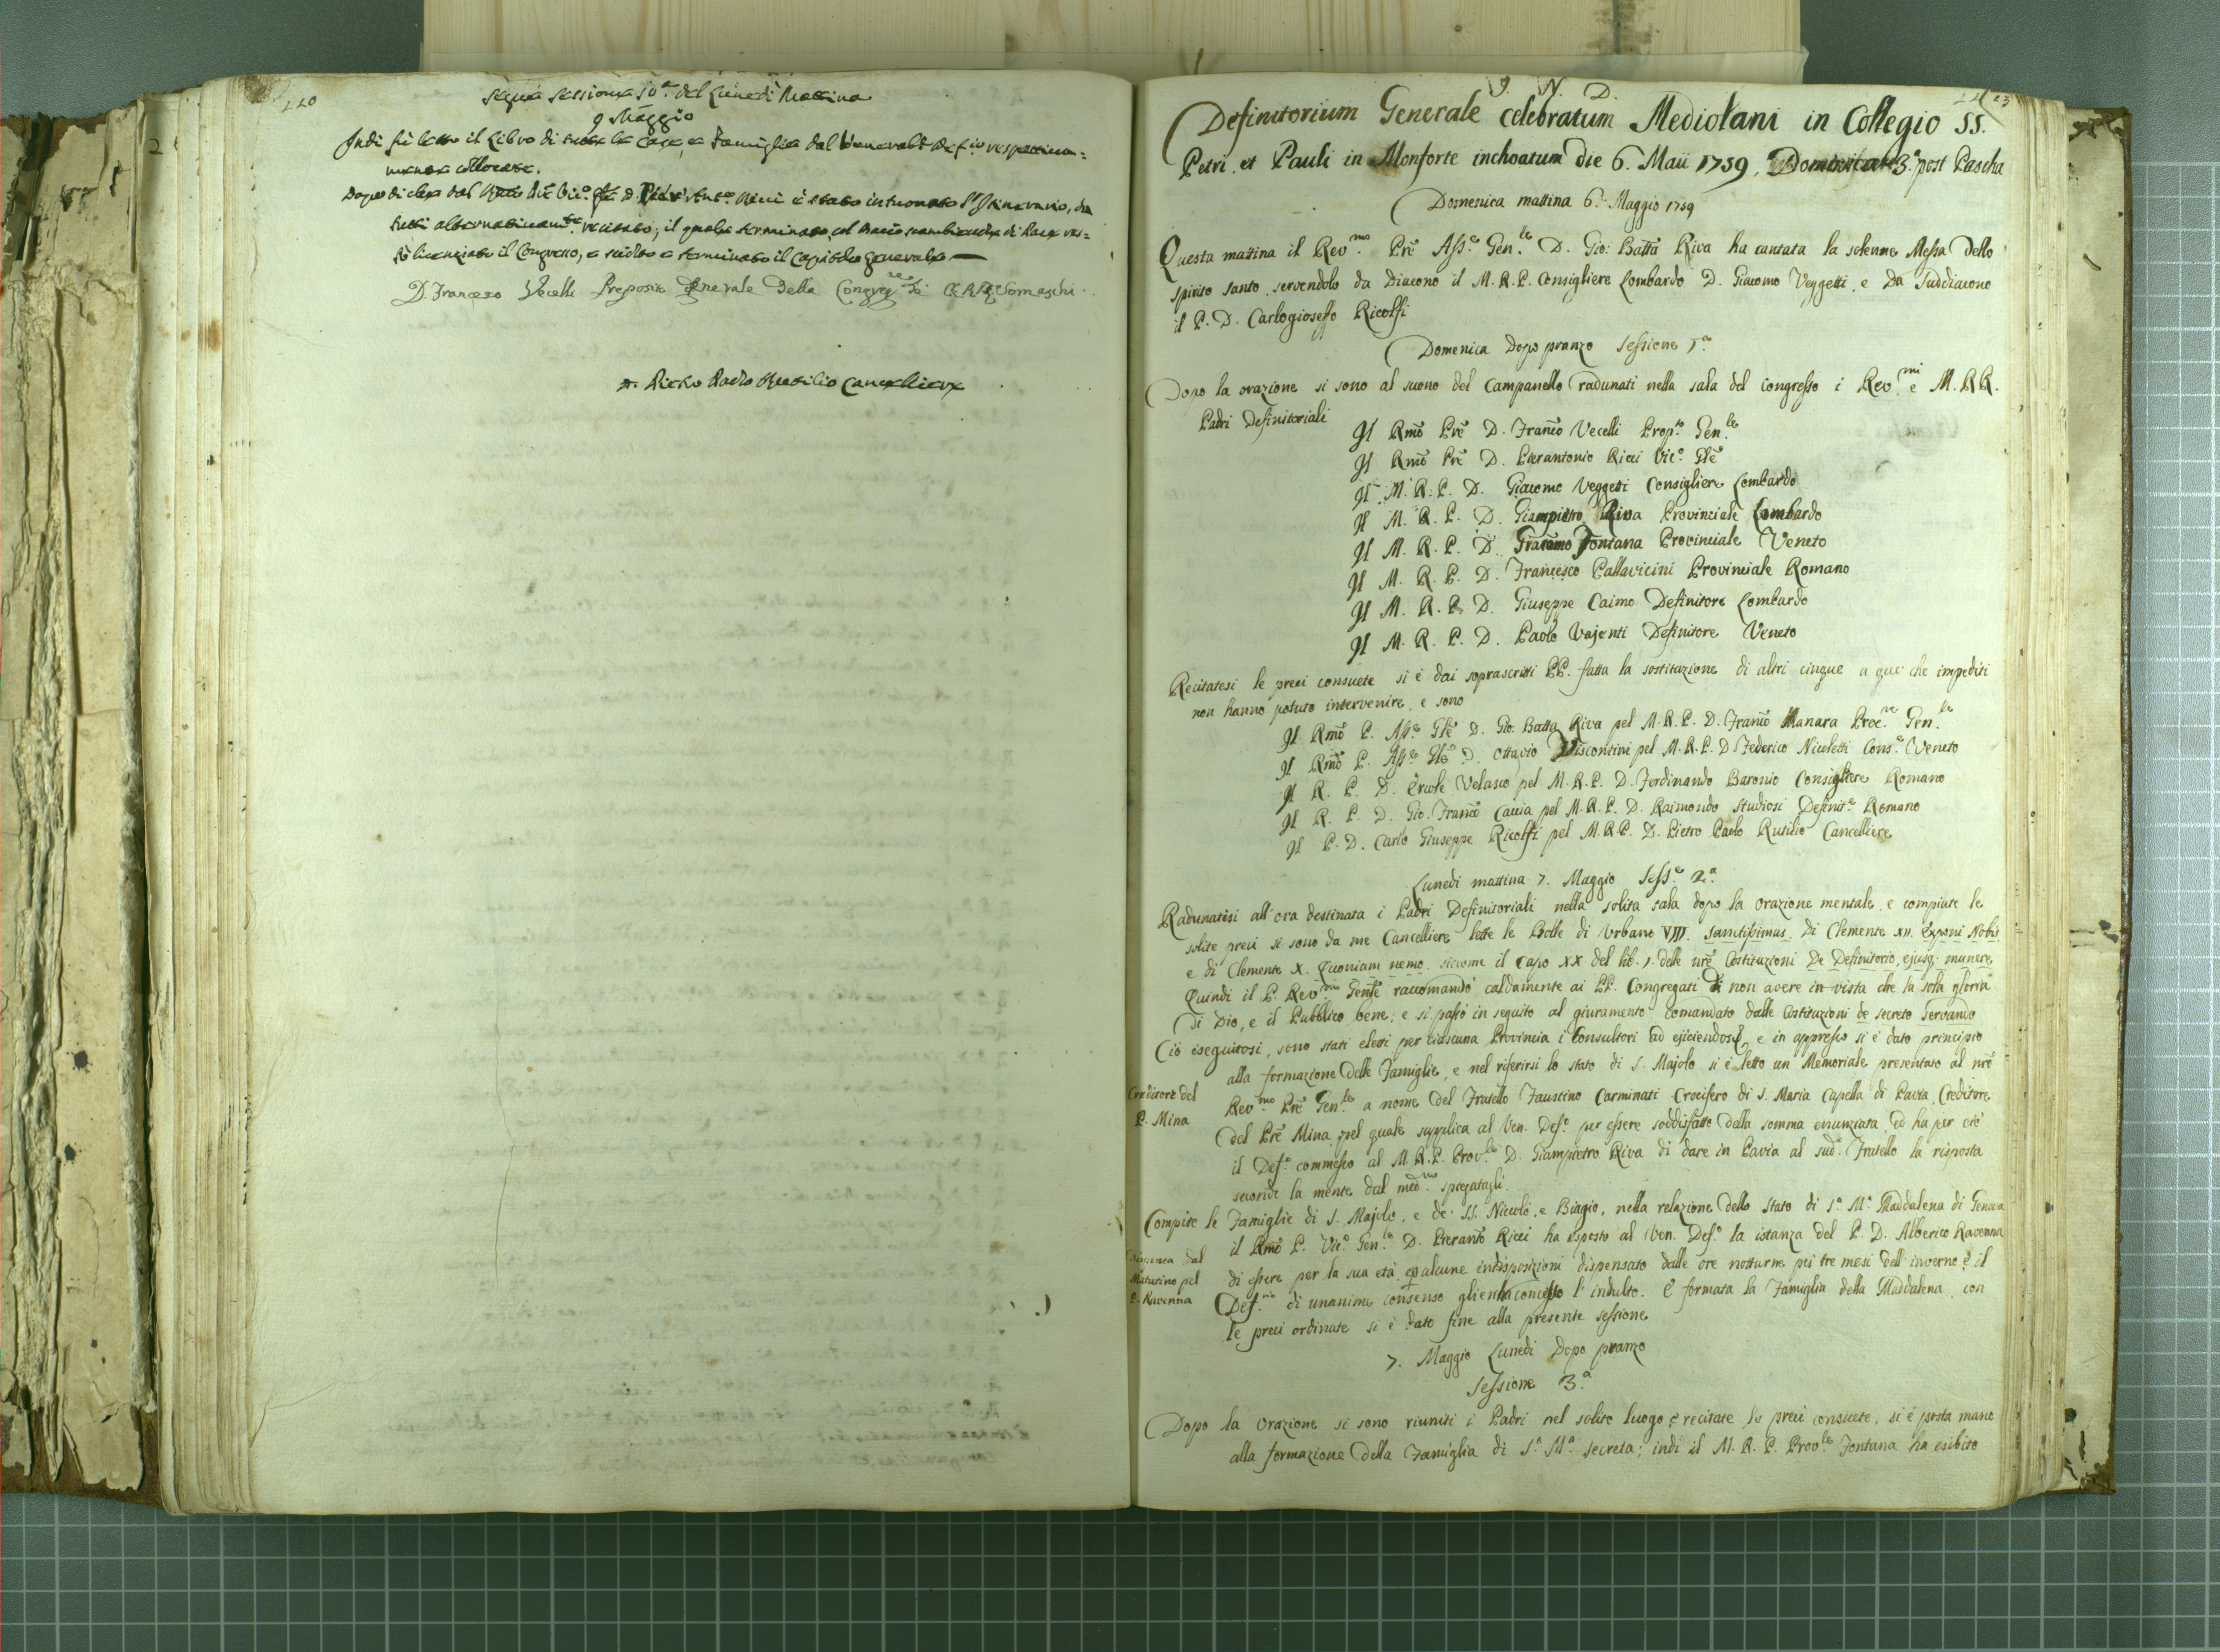 220
Segue Sessione 10.ª del Lunedì Mattina
9 Maggio
Indi fù letto il Libro di tutte le Case, e Famiglie dal Venerable Def.io respettiva=
mente collocate.
Dopo di che dal Rmo Prē Vic.º Gle D. Ricci è stato intuonato l'Itinerario, da
tutti alternativam.te recitato; il quale terminato, col bacio scambievole di Pace res=
tò licenziato il Congresso, e sciolto e terminato il Capitolo Generale
D. Franceso Vecelli Preposto Generale della Congreg.ne de CRR Somaschi
D. Pietro Paolo Rutilio Cancelliere
J. N. D.
Definitorium Generale celebratum Mediolani in Collegio SS.
Petri, et Pauli in Monforte inchoatum die 6. Maii 1759, Dominica 3.ª post Pascha
Domenica mattina 6. Maggio 1759
Questa mattina il Rev.mo Prē Ass.e Gen.le D. Gio: Batta Riva ha cantata la solenne Messa dello
spirito santo, servendolo da Diacono il M. R. P. Consigliere Lombardo D. Giacomo Veggetti, e da Suddiacono
il P. D. Carlogioseffo Ricolfi
Domenica dopo pranzo Sessione 1.ª
Dopo la orazione si sono al suono del Campanello radunati nella sala del congresso i Rev.mi e M. RR.
Padri Definitoriali
Il Rmō Prē D. Franco Vecelli Prop.to Gen.le
Il Rmō Prē D. Pierantonio Ricci Vic.º Glē
Il M. R. P. D. Giacomo Veggetti Consigliere Lombardo
Il M. R. P. D. Giampietro Riva Provinciale Lombardo
Il M. R. P. D. Giacomo Fontana Provinciale Veneto
Il M. R. P. D. Francesco Pallavicini Provinciale Romano
Il M. R. P. D. Giuseppe Caimo Definitore Lombardo
Il M. R. P. D. Paolo Vajenti Definitore Veneto
Recitatesi le preci consuete si è dai soprascritti PP. fatta la sostituzione di altri cinque a que' che impediti
non hanno potuto intervenire, e sono
Il Rmō P. Ass.e Glē D. Gio: Batta Riva pel M. R. P. D. Franco Manara Proc.re Gen.le
Il Rmō P. Ass.e Glē D. Ottavio Viscontini pel M. R. P. D Federico Nicoletti Cons.e Veneto
Il R. P. D. Ercole Velasco pel M. R. P. D. Ferdinando Baronio Consigliere Romano
Il R. P. D. Gio. Franco Caccia pel M. R. P. D. Raimondo Studiosi Definit.e Romano
Il P. D. Carlo Giuseppe Ricolfi pel M. R. P. D. Pietro Paolo Rutilio Cancelliere
Lunedi mattina 7. Maggio Sess.e 2.ª
Radunatisi all'ora destinata i Padri Definitoriali nella solita sala dopo la orazione mentale, e compiute le
solite preci si sono da me Cancelliere lette le Bolle di Urbano VIII. Sanctissimus, di Clemente XII. Exponi Nobis
e di Clemente X. Quoniam nemo, siccome il capo XX del lib. 1. delle nrē Costituzioni De Definitorio, ejusq. munere
Quindi il P. Rev.mo Genle raccomandò caldamente ai PP. Congregati di non avere in vista che la sola gloria
di Dio, e il Pubblico bene; e si passò in seguito al giuramento comandato dalle Costituzioni de secreto servando
Ciò eseguitosi, sono stati eletti per ciascuna Provincia i Consultori ad ejiciendos, e in appresso si è dato principio
alla formazione delle Famiglie, e nel riferirsi lo stato di S. Majolo si è letto un Memoriale presentato al nrō
Creditore del
P. Mina
Rev.mo Prē Gen.le a nome del Fratello Faustino Carminati Crocifero di S. Maria Capella di Pavia, Creditore
del Prē Mina, nel quale supplica al Ven. Def.º per essere soddisfatto dalla somma enunziata, ed ha per ciò
il Def.º commesso al M. R. P. Prov.le D. Giampietro Riva di dare in Pavia al sud.º Fratello la risposta
secondo la mente dal med.mo spiegatagli.
Compite le Famiglie di S. Majolo, e de' SS. Nicolò, e Biagio, nella relazione dello stato di S.ª M.ª Maddalena di Genova
il Rmō P. Vic.º Gen.le D. Pieranto Ricci ha esposto al Ven. Def.º la istanza del P. D. Alberico Ravenna
dal
Matutino pel
P. Ravenna
di essere per la sua età, e alcune indisposizioni dispensato dalle ore notturne pei tre mesi dell'inverno e il
Def.rio di unanime consenso gliene ha concesso l'indulto. E formata la Famiglia della Maddalena, con
le preci ordinate si è dato fine alla presente sessione
7. Maggio Lunedi dopo pranzo
Sessione 3.ª
Dopo la orazione si sono riuniti i Padri nel solito luogo e recitate le preci consuete, si è posta mano
alla formazione della Famiglia di S.ª M.ª Secreta; indi il M. R. P. Prov.le Fontana ha esibito